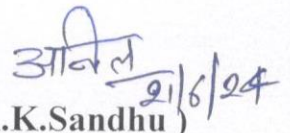 अनिल
21/6/24
.K.Sandhu )